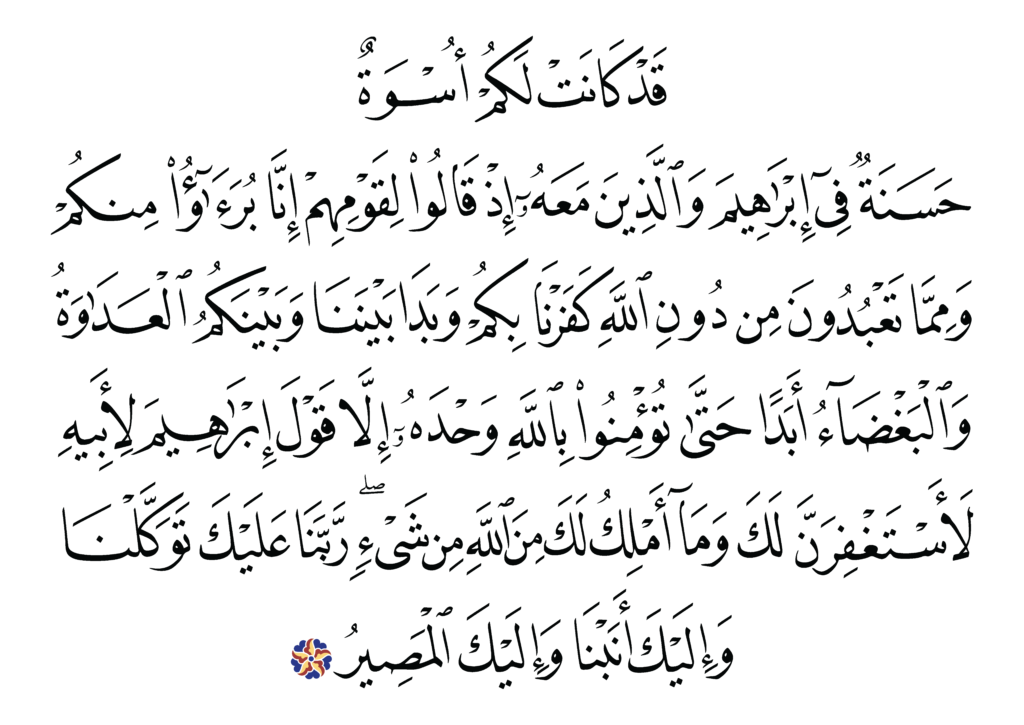 قَدْ كَانَتْ لَكُمْ أُسْوَةٌ
حَسَنَةٌ فِىٓ إِبْرَٰهِيمَ وَٱلَّذِينَ مَعَهُۥٓ إِذْ قَالُوا۟ لِقَوْمِهِمْ إِنَّا بُرَءَٰٓؤُا۟ مِنكُمْ
وَمِمَّا تَعْبُدُونَ مِن دُونِ ٱللَّهِ كَفَرْنَا بِكُمْ وَبَدَا بَيْنَنَا وَبَيْنَكُمُ ٱلْعَدَٰوَةُ
وَٱلْبَغْضَآءُ أَبَدًا حَتَّىٰ تُؤْمِنُوا۟ بِٱللَّهِ وَحْدَهُۥٓ إِلَّا قَوْلَ إِبْرَٰهِيمَ لِأَبِيهِ
لَأَسْتَغْفِرَنَّ لَكَ وَمَآ أَمْلِكُ لَكَ مِنَ ٱللَّهِ مِن شَىْءٍۖ رَّبَّنَا عَلَيْكَ تَوَكَّلْنَا
وَإِلَيْكَ أَنَبْنَا وَإِلَيْكَ ٱلْمَصِيرُ